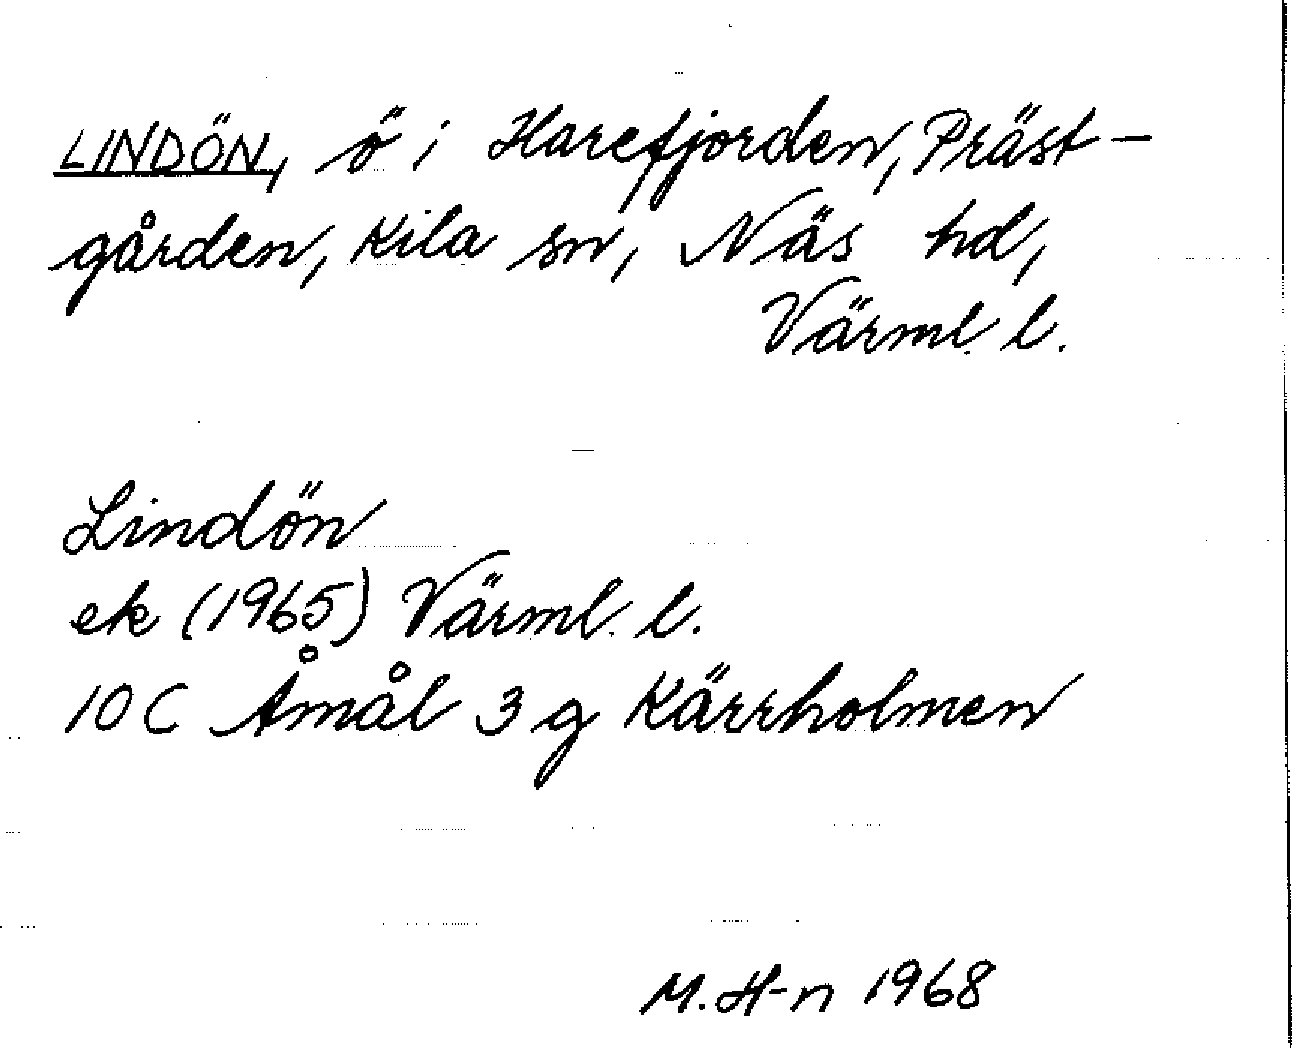 LINDÖN, ö i Harefjorden, Präst-
gården, Kila sn, Näs hd,
Värml. l.
Lindön
ek (1965) Värml. l.
10C Åmål 3 g Kärrholmen
M. H-n 1968